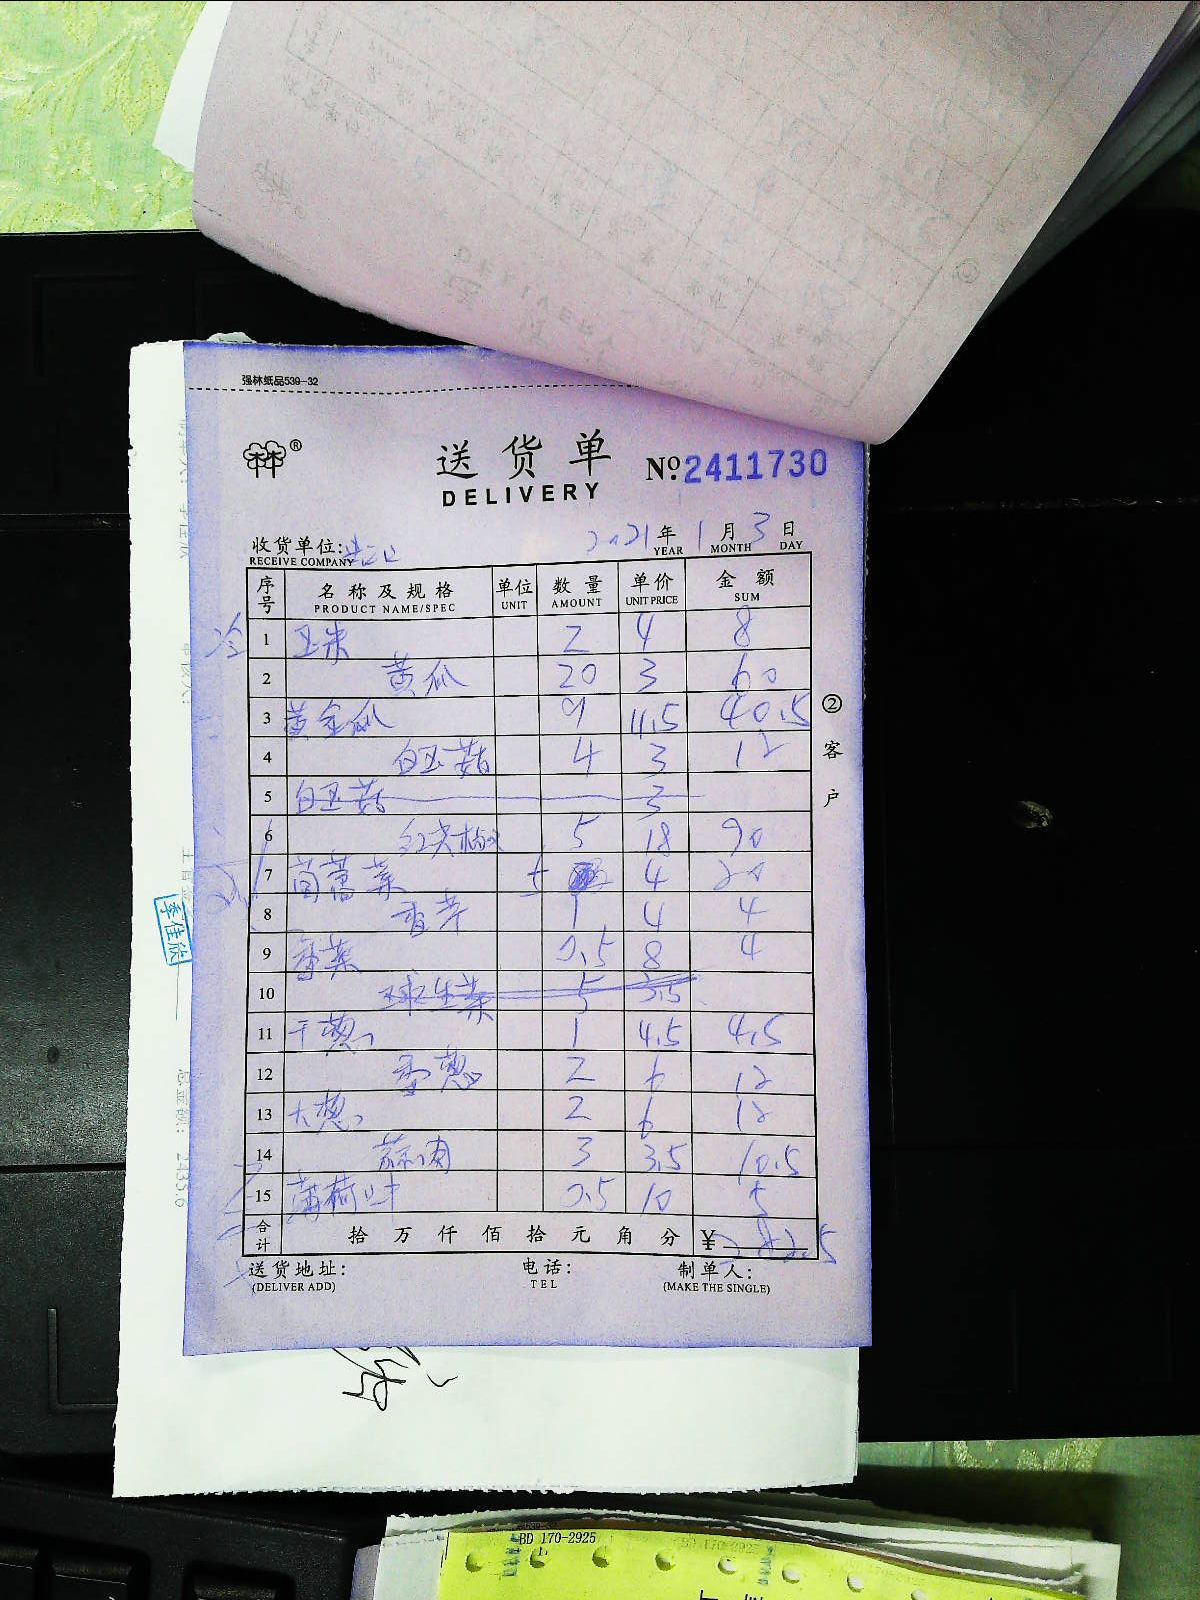 强林纸品539-32
林林®
送货单
DELIVERY
№:2411730
2021年 1月 3日
YEAR MONTH DAY
收货单位:
RECEIVE COMPANY
序号 名称及规格 单位 数量 单价 金额
PRODUCT NAME/SPEC UNIT AMOUNT UNIT PRICE SUM
冷
1 玉米 2 4 8
2 黄瓜 20 3 60
3 黄金瓜 9 4.5 40.5
4 白玉菇 4 3 12
5 白玉菇 3
6 红尖椒 5 18 90
7 茼蒿菜 5 4 20
8 香芹 1 4 4
9 香菜 0.5 8 4
10 玉球生菜 5 3.5
11 干葱 1 4.5 4.5
12 香葱 2 6 12
13 大葱 2 6 12
14 蒜肉 3 3.5 10.5
15 薄荷叶 0.5 10 5
合计 拾 万 仟 佰 拾 元 角 分 ¥ 282.5
送货地址: 电话: 制单人:
(DELIVER ADD) TEL (MAKE THE SINGLE)
②客户
李佳欣
总金额: 2433.6
BD 170-2925